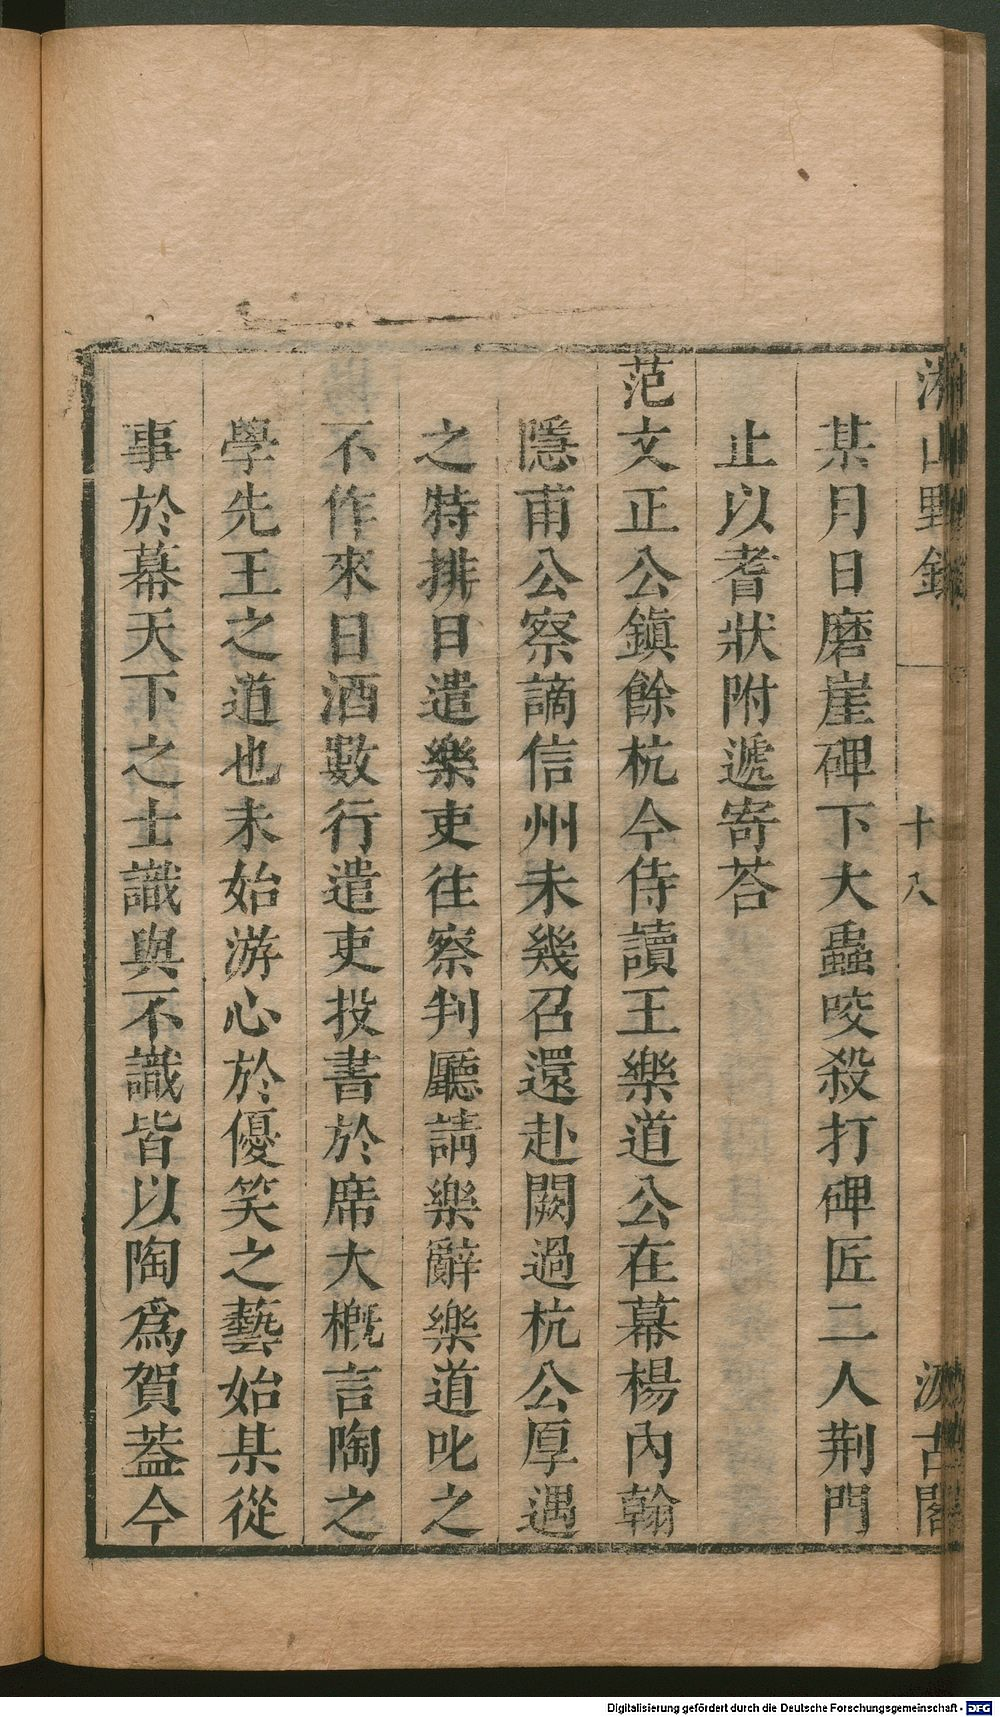 湘山野錄
十八
汲古閣
某月日磨崖碑下大蟲咬殺打碑匠二人荆門
止以耆狀附遞寄荅
范文正公鎮餘杭今侍讀王樂道公在幕楊內翰
隱甫公察謫信州未幾召還赴闕過杭公厚遇
之特排日遣樂吏往察判廳請樂辭樂道叱之
不作來日酒數行遣吏投書於席大槪言陶之
學先王之道也未始游心於優笑之藝始某從
事於幕天下之士識與不識皆以陶爲賀葢今
Digitalisierung gefördert durch die Deutsche Forschungsgemeinschaft - DFG